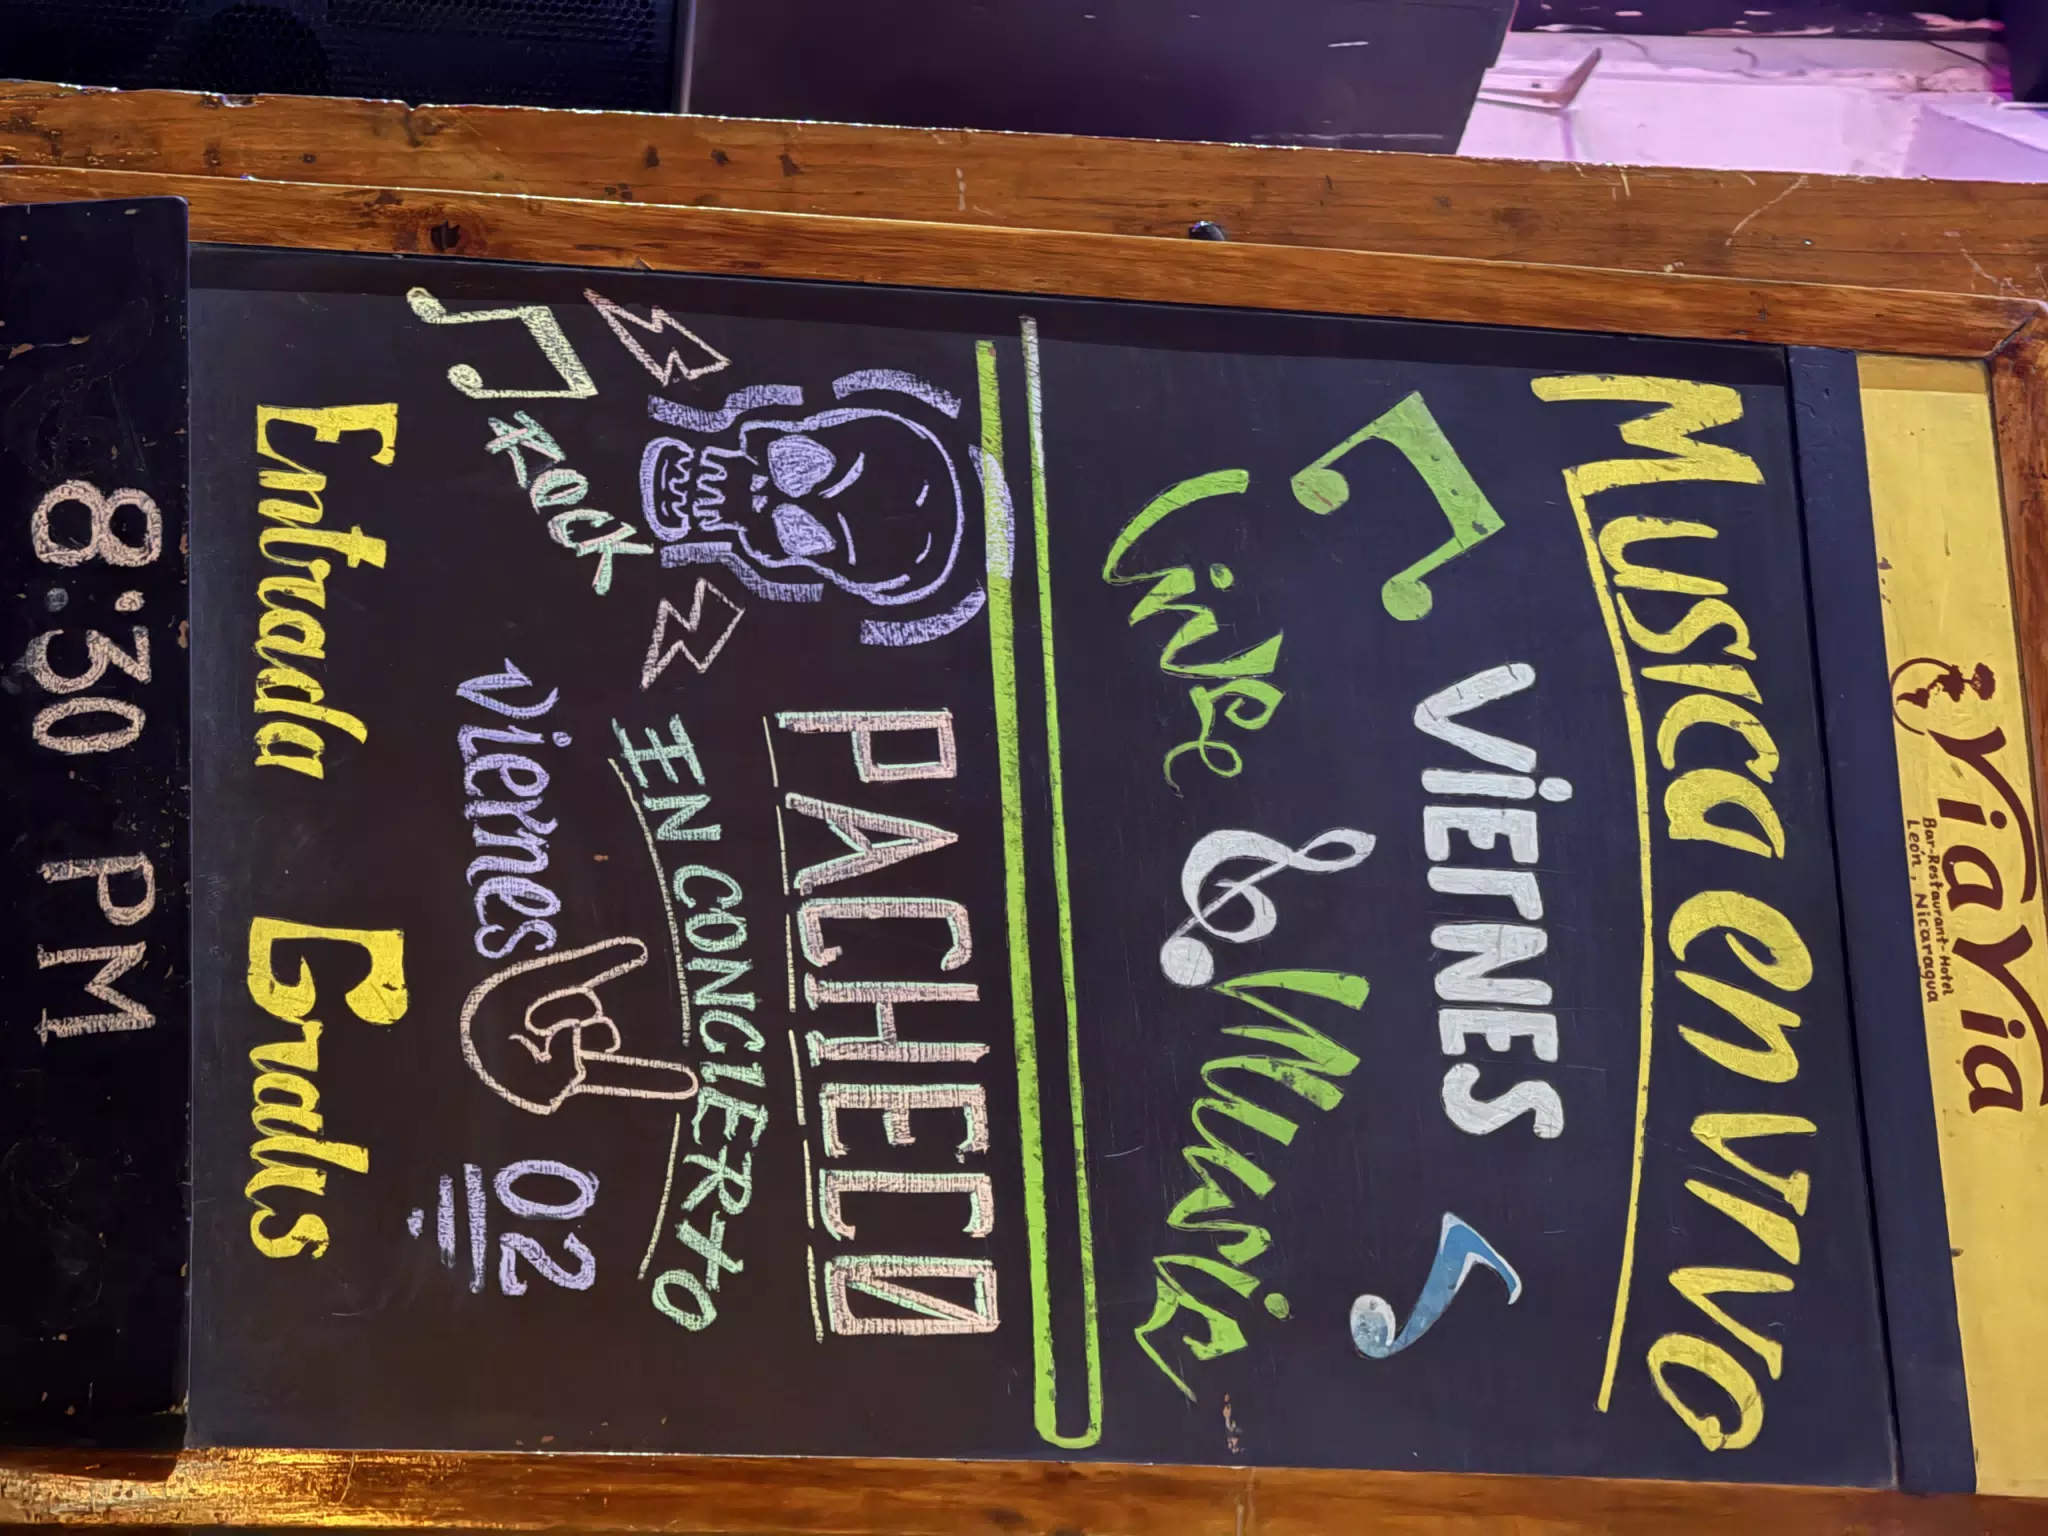 ViaVia
Bar-Restaurant-Hotel
León, Nicaragua
Musica en vivo
ViERNES
Live & Music
PACHECO
EN CONCIERTO
ROCK
viernes 02
Entrada Gratis
8:30 PM